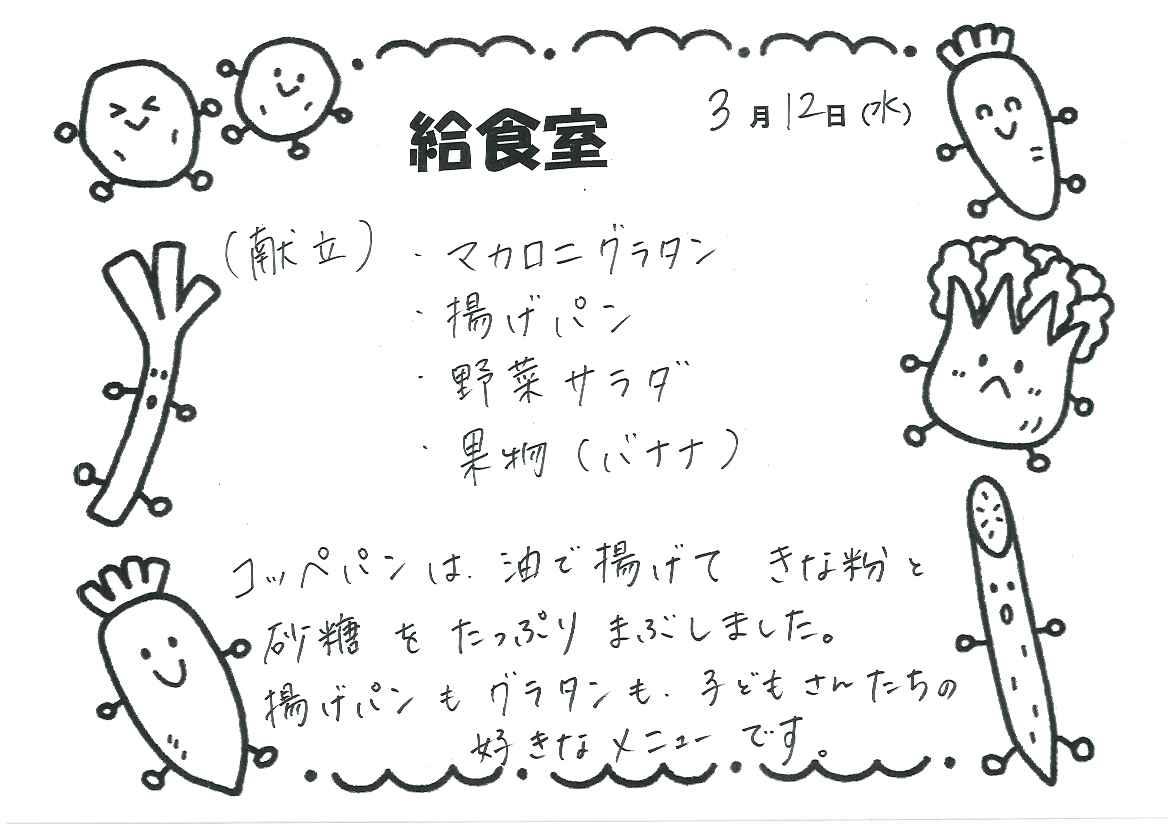 3月12日(水)
給食室
(献立)・マカロニグラタン
・揚げパン
・野菜サラダ
・果物(バナナ)
コッペパンは、油で揚げて きな粉と
砂糖 を たっぷり まぶしました。
揚げパンも グラタンも、子どもさんたちの
好きなメニューです。